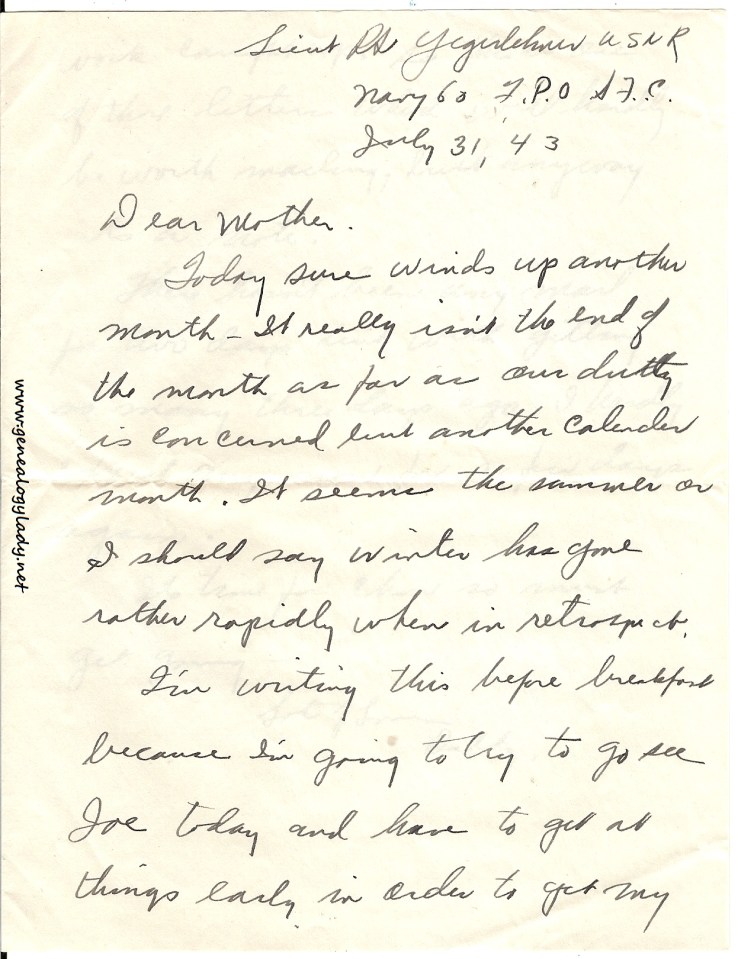 Lieut RH Yegerlehner USNR
Navy 60 F.P.O S.F.C.
July 31, 43
Dear Mother.
Today sure winds up another
month - It really isn't the end of
the month as far as our dutty
is concerned but another calender
month. It seems the summer or
I should say winter has gone
rather rapidly when in retrospect.
I'm writing this before breakfast
because I'm going to try to go see
Joe today and have to get at
things early in order to get my
www.genealogylady.net